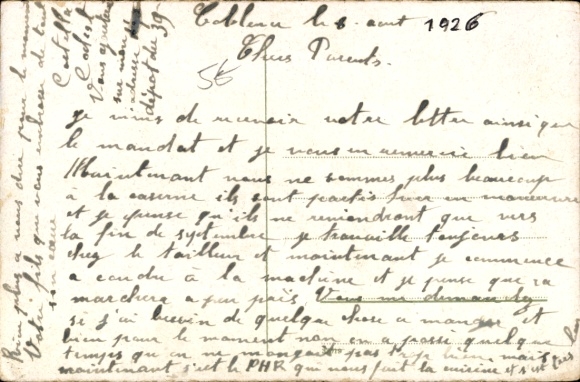 Coblence le 8 aout 1926
Chers Parents.
56
je viens de recevoir votre letter ainsi que
le mandat et je vous en remercie bien
Maintenant nous ne sommes plus beaucoup
à la caserne ils sont partis hier en manoeuvre
et je pense qu'ils ne reviendront que vers
la fin de septembre je travaille toujours
chez le tailleur et maintenant je commence
a coudre à la machine et je pense que ca
marchera a peu près. Vous me demandez
si j'ai besoin de quelque chose a manger et
bien pour le moment non on a passé quelque
temps qu'on ne mangeait pas trop bien mais
maintenant s'est le PHR qui nous fait la cuisine et s'est tres bon
Rien plus a vous dire pour le moment
Votre fils qui vous embrasse de tout
son coeur
Vous
sur mon
adresse
dépot du 39